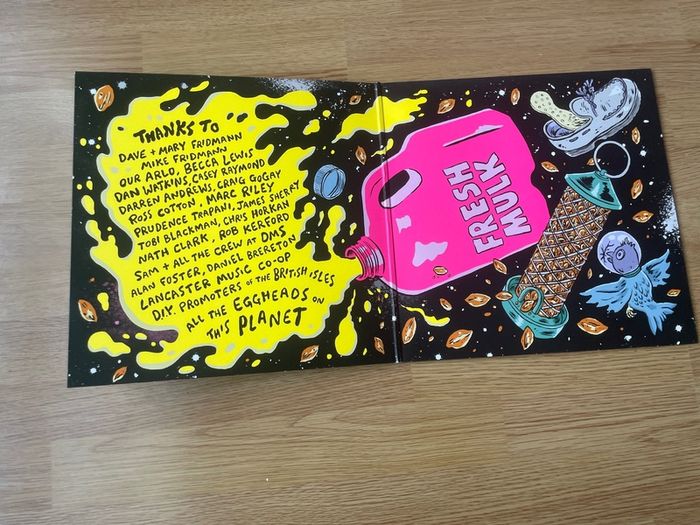 THANKS TO
DAVE + MARY FRIDMANN
MIKE FRIDMANN
OUR ARLO, BECCA LEWIS
DAN WATKINS, CASEY RAYMOND
DARREN ANDREWS, CRAIG GOGAY
ROSS COTTON, MARC RILEY
PRUDENCE TRAPANI, JAMES SHERRY
TOBI BLACKMAN, CHRIS HORKAN
NATH CLARK, ROB KERFORD
SAM + ALL THE CREW AT DMS
ALAN FOSTER, DANIEL BRERETON
LANCASTER MUSIC CO-OP
D.I.Y. PROMOTERS OF THE BRITISH ISLES
ALL THE EGGHEADS ON
THIS PLANET
FRESH
MULK